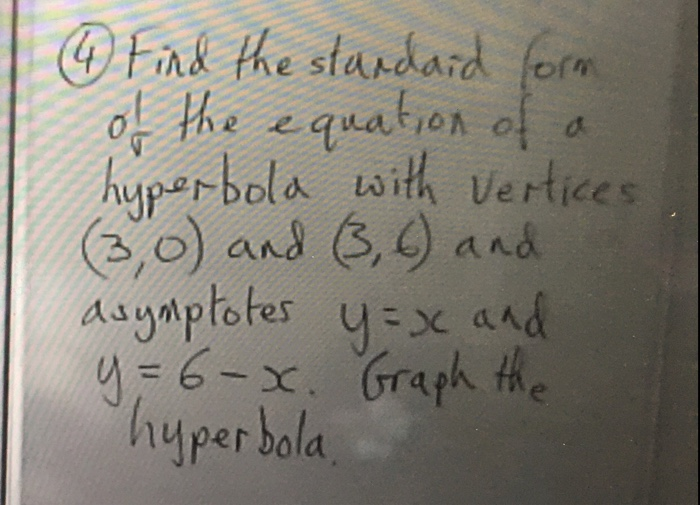 ④ Find the standard form
of the equation of a
hyperbola with vertices
(3,0) and (3,6) and
asymptotes y=x and
y=6-x. Graph the
hyperbola.